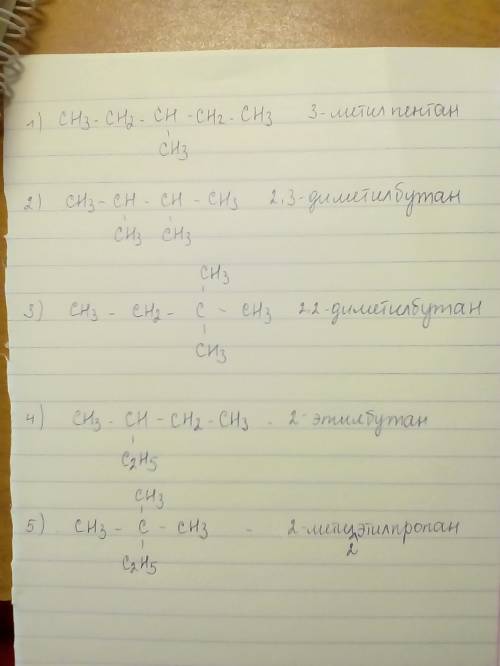 1) CH3 - CH2 - CH - CH2 - CH3 3-метилпентан
CH3
2) CH3 - CH - CH - CH3 2,3-диметилбутан
CH3 CH3
CH3
3) CH3 - CH2 - C - CH3 2.2-диметилбутан
CH3
4) CH3 - CH - CH2 - CH3 - 2-этилбутан
C2H5
CH3
5) CH3 - C - CH3 - 2-метил2этилпропан
C2H5